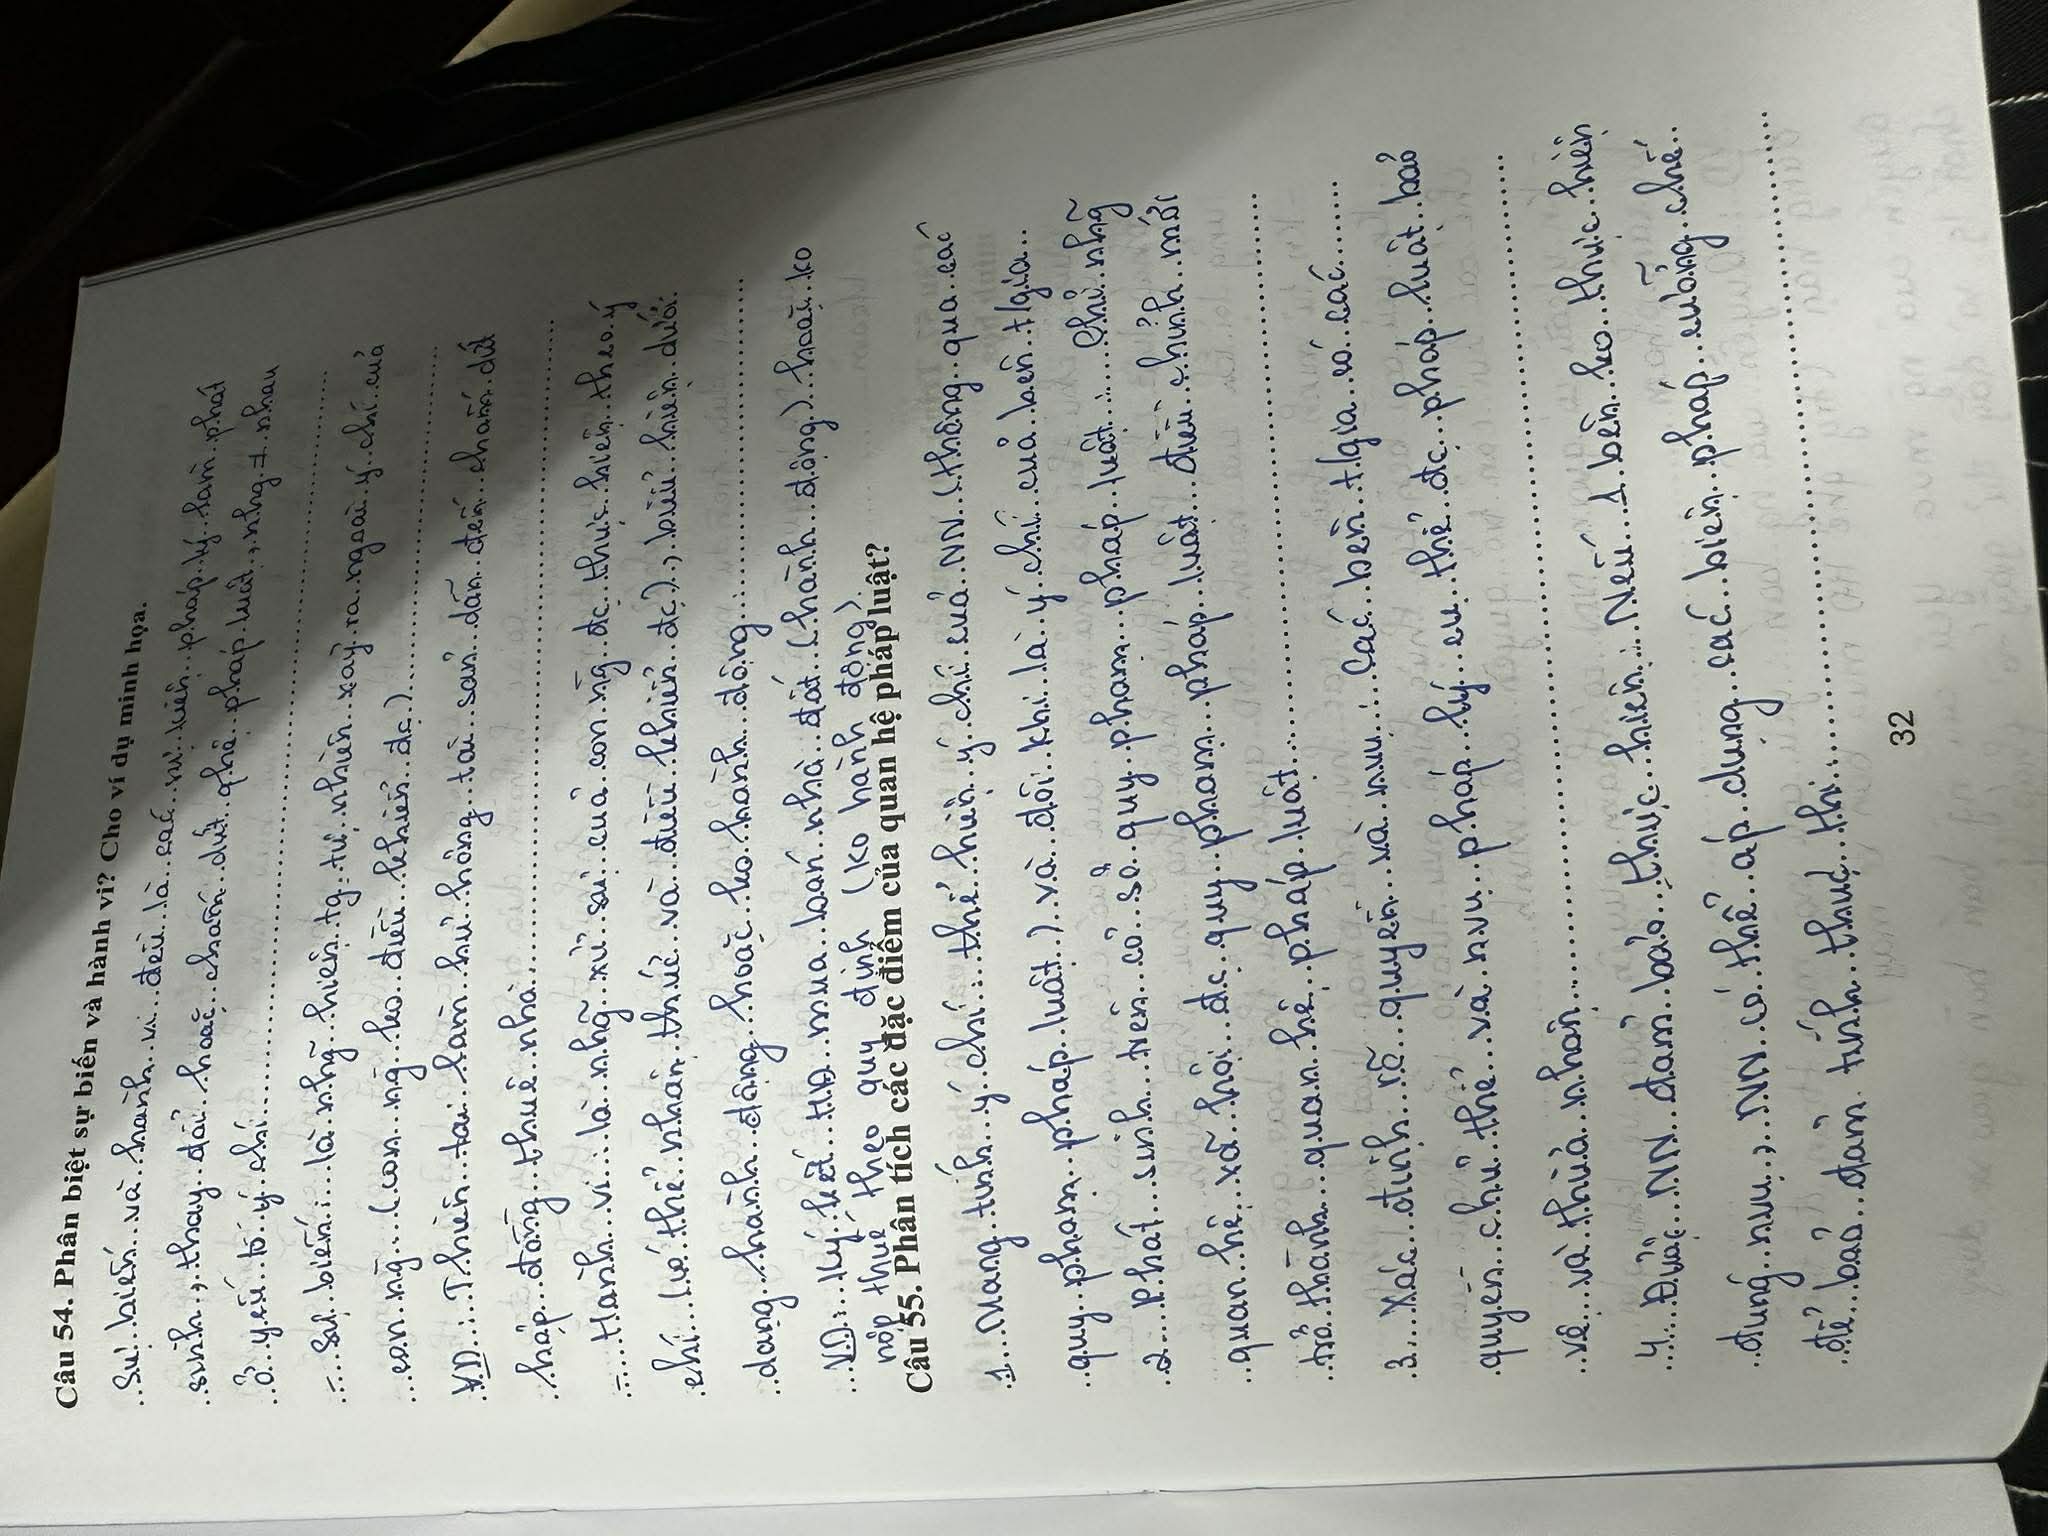 Câu 54. Phân biệt sự biến và hành vi? Cho ví dụ minh họa.
Sự biến và hành vi đều là các sự kiện pháp lý làm phát
sinh, thay đổi hoặc chấm dứt qhệ pháp luật, nhg ≠ nhau
ở yếu tố ý chí
- Sự biến: là nhg~ hiện tg tự nhiên xảy ra ngoài ý chí của
con ng (con ng ko điều khiển đc)
VD: Thiên tai làm hư hỏng tài sản dẫn đến chấm dứt
hợp đồng thuê nhà
- Hành vi: là nhg~ xử sự của con ng đc thực hiện theo ý
chí (có thể nhận thức và điều khiển đc), biểu hiện dưới
dạng hành động hoặc ko hành động
VD: Ký kết HĐ mua bán nhà đất (hành động) hoặc ko
nộp thuế theo quy định (ko hành động)
Câu 55. Phân tích các đặc điểm của quan hệ pháp luật?
1. Mang tính ý chí: thể hiện ý chí của NN (thông qua các
quy phạm pháp luật) và đôi khi là ý chí của bên tgia
2. Phát sinh trên cơ sở quy phạm pháp luật: Chỉ nhg~
quan hệ xã hội đc quy phạm pháp luật điều chỉnh mới
trở thành quan hệ pháp luật
3. Xác định rõ quyền và nvụ: Các bên tgia có các
quyền chủ thể và nvụ pháp lý cụ thể đc pháp luật bảo
vệ và thừa nhận
4. Được NN đảm bảo thực hiện: Nếu 1 bên ko thực hiện
đúng nvụ, NN có thể áp dụng các biện pháp cưỡng chế
để bảo đảm tính thực thi
32